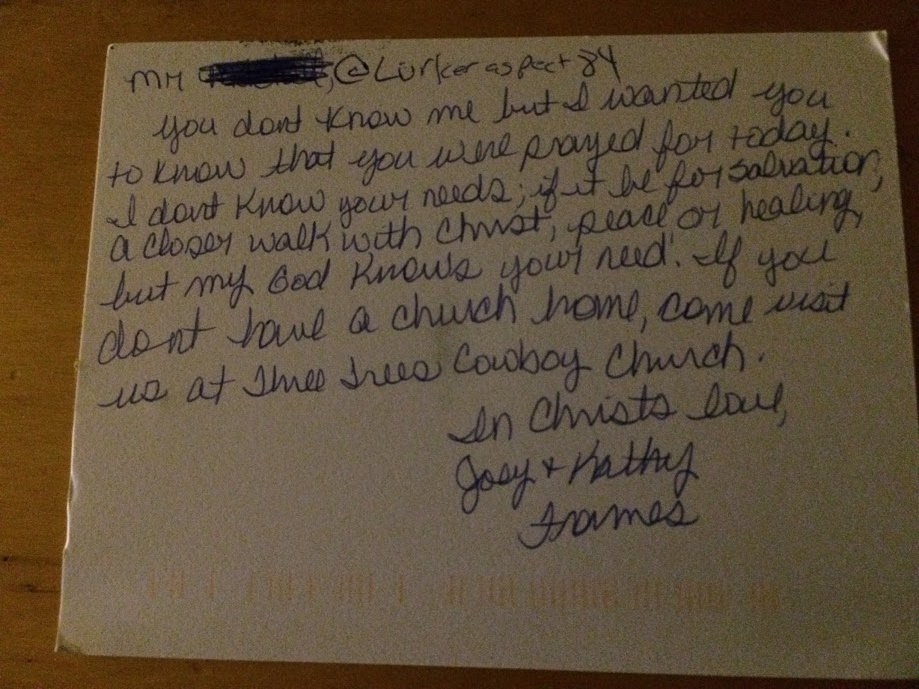 Mr @Lurkeraspect84
you dont know me but I wanted you
to know that you were prayed for today.
I dont know your needs; if it be for salvation,
a closer walk with Christ, peace or healing,
but my God knows your need. If you
dont have a church home, come visit
us at Three Trees Cowboy Church.
In Christs love,
Joey + Kathy
Frames